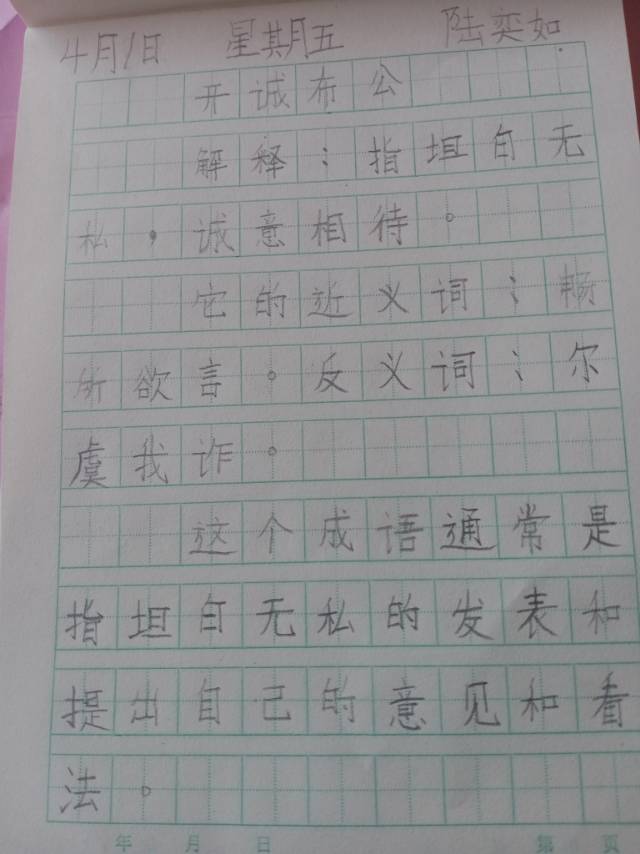 4月1日 星期五 陆奕如
开诚布公
解释：指坦白无
私，诚意相待。
它的近义词：畅
所欲言。反义词：尔
虞我诈。
这个成语通常是
指坦白无私的发表和
提出自己的意见和看
法。
年 月 日 第 页